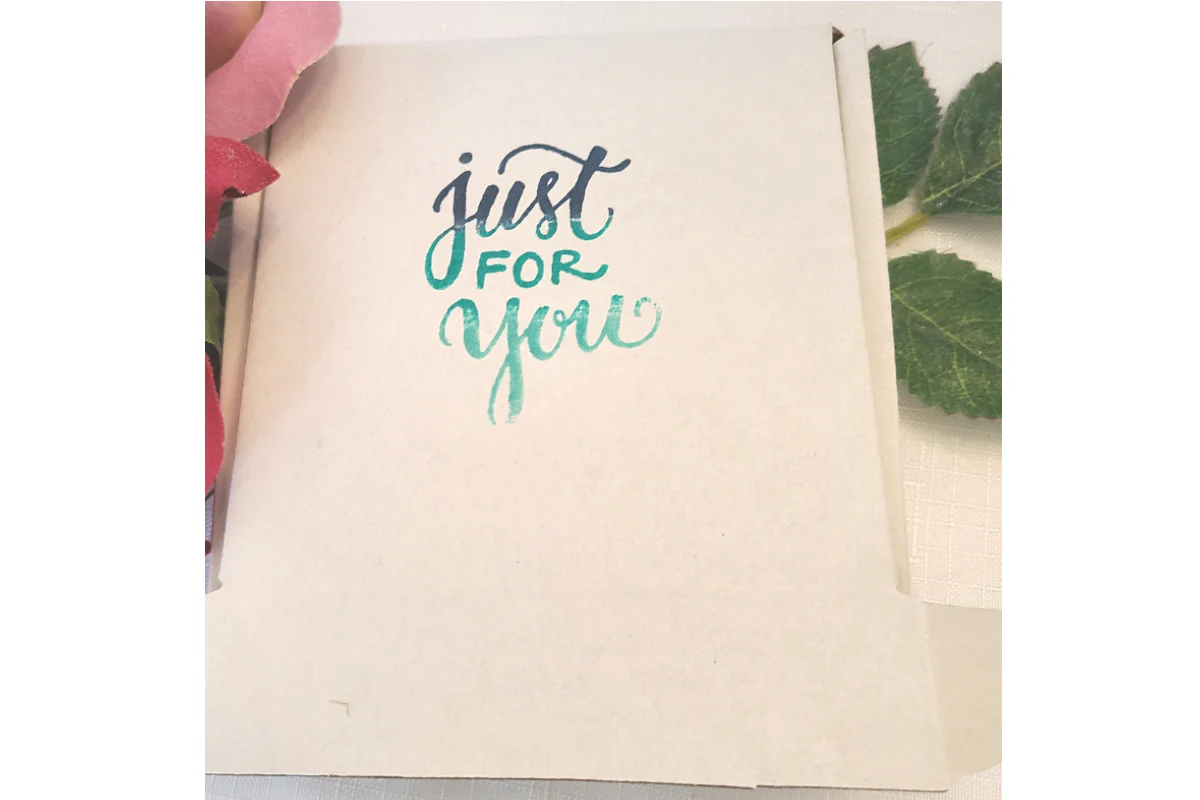 just
FOR
you